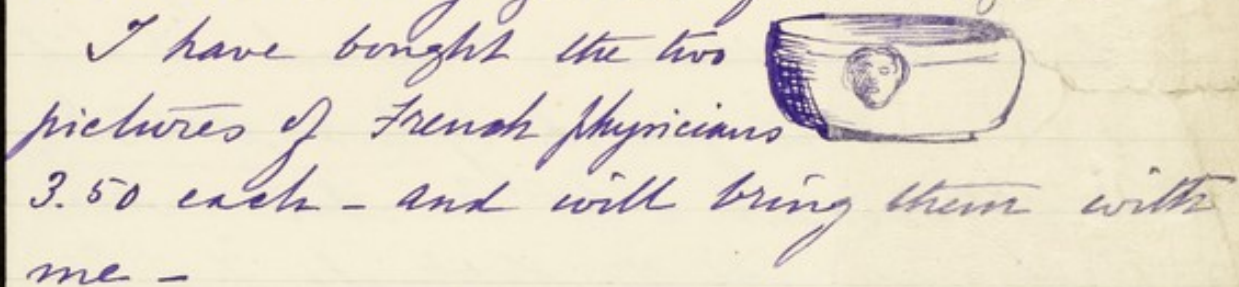 I have bought the two
pictures of French physicians
3.50 each - and will bring them with
me -